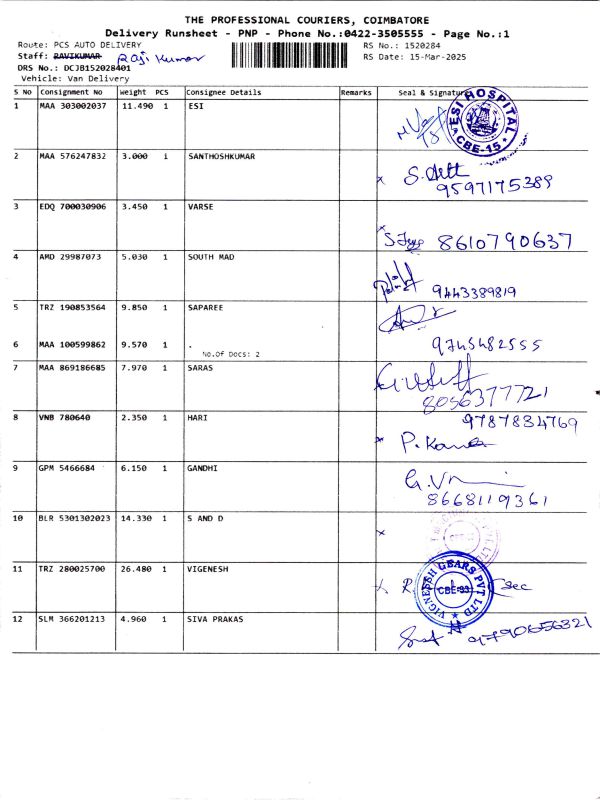 THE PROFESSIONAL COURIERS, COIMBATORE
Delivery Runsheet - PNP - Phone No.:0422-3505555 - Page No.:1
Route: PCS AUTO DELIVERY RS No.: 1520284
Staff: RAVIKUMAR Raji Kumar RS Date: 15-Mar-2025
DRS No.: DCJB152028401
Vehicle: Van Delivery
S No Consignment No Weight PCS Consignee Details Remarks Seal & Signature
1 MAA 303002037 11.490 1 ESI
ESI HOSPITAL CBE-15
2 MAA 576247832 3.000 1 SANTHOSHKUMAR
9597175389
3 EDQ 700030906 3.450 1 VARSE
8610790637
4 AMD 29987073 5.030 1 SOUTH MAD
9443389819
5 TRZ 190853564 9.850 1 SAPAREE
6 MAA 100599862 9.570 1 .
9745482555
No.Of Docs: 2
7 MAA 869186685 7.970 1 SARAS
8056377721
8 VNB 780640 2.350 1 HARI
9787834769
9 GPM 5466684 6.150 1 GANDHI
8668119361
10 BLR 5301302023 14.330 1 S AND D
11 TRZ 280025700 26.480 1 VIGENESH
VIGNESSH GEARS PVT LTD CBE-33
12 SLM 366201213 4.960 1 SIVA PRAKAS
9790656321